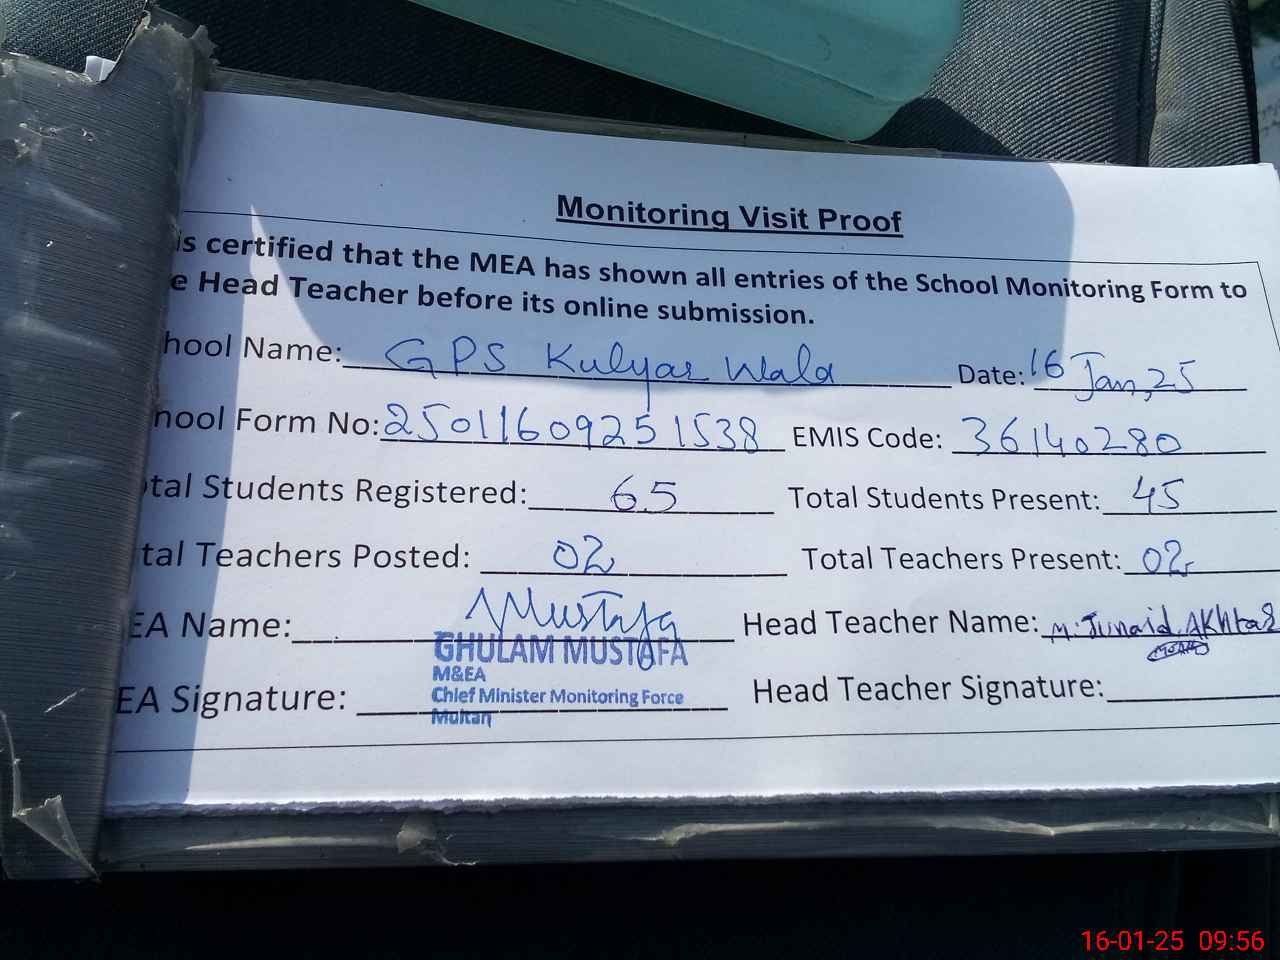 Monitoring Visit Proof
is certified that the MEA has shown all entries of the School Monitoring Form to
e Head Teacher before its online submission.
hool Name: GPS Kulyar Wala Date: 16 Jan, 25
hool Form No: 25011609251538 EMIS Code: 36140280
tal Students Registered: 65 Total Students Present: 45
tal Teachers Posted: 02 Total Teachers Present: 02
EA Name: Mustafa Head Teacher Name: M. Junaid AKhtar
GHULAM MUSTAFA
M&EA
EA Signature: Chief Minister Monitoring Force Head Teacher Signature:
Multan
16-01-25 09:56